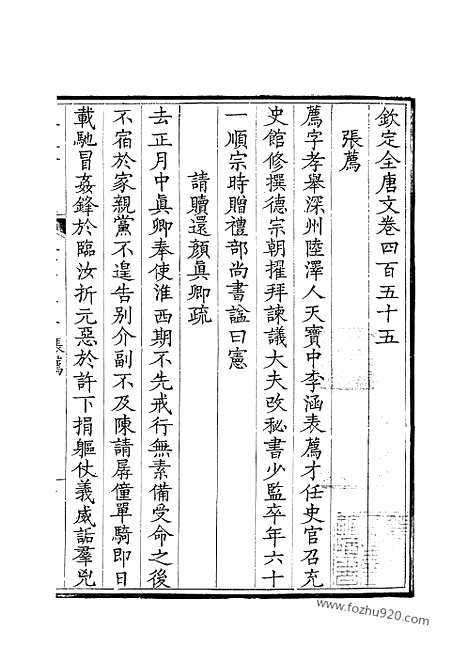 欽定全唐文卷四百五十五
張薦
薦字孝舉深州陸澤人天寶中李涵表薦才任史官召充
史館修撰德宗朝擢拜諫議大夫改秘書少監卒年六十
一順宗時贈禮部尚書諡曰憲
請贖還顏眞卿疏
去正月中眞卿奉使淮西期不先戒行無素備受命之後
不宿於家親黨不遑告别介副不及陳請孱僮單騎即日
載馳冒姦鋒於臨汝折元惡於許下捐軀仗義威詬羣兇
張薦
www.fozhu920.com